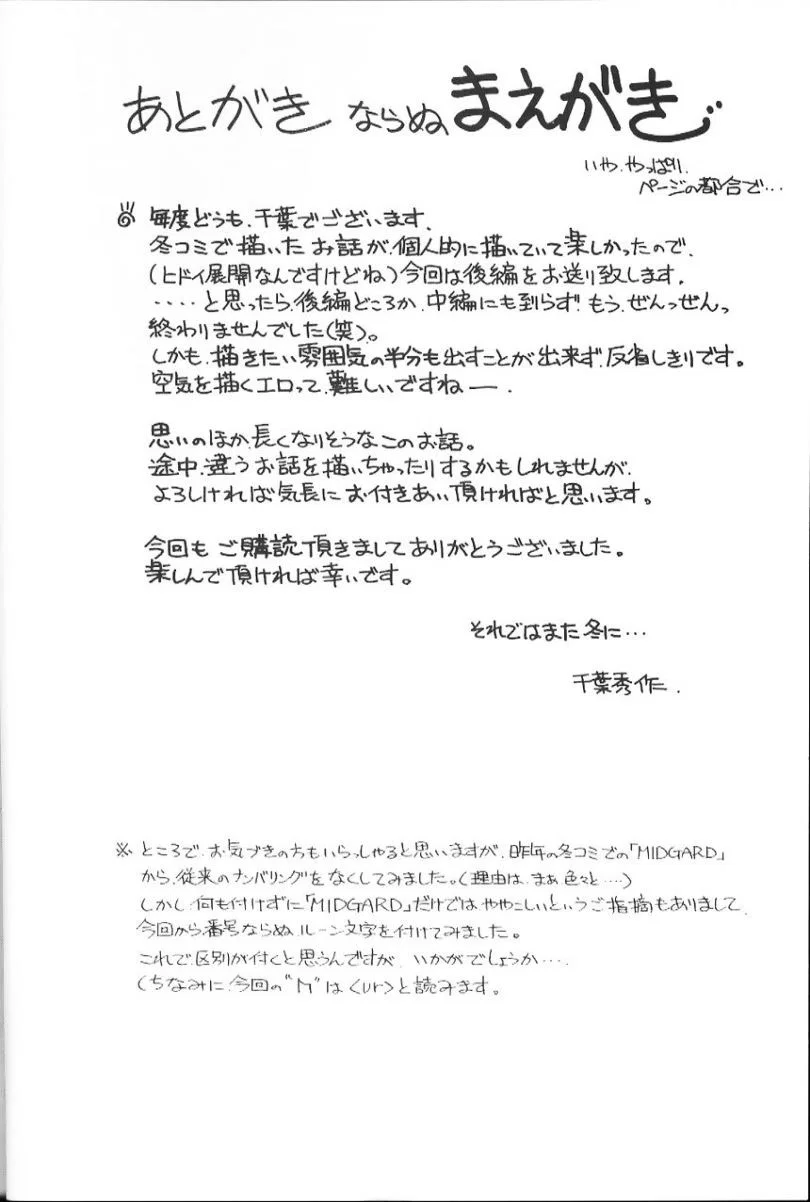 あとがき ならぬ まえがき
いや、やっぱり、
ページの都合で…
毎度どうも、千葉でございます、
冬コミで描いたお話が、個人的に描いていて楽しかったので、
(ヒドイ展開なんですけどね)今回は後編をお送り致します、
‥‥と思ったら、後編どころか、中編にも到らず!もう、ぜんっぜんっ
終わりませんでした(笑)。
しかも、描きたい雰囲気の半分も出すことが出来ず、反省しきりです。
空気を描くエロって、難しいですねー、
思いのほか、長くなりそうなこのお話。
途中、違うお話を描いちゃったりするかもしれませんが、
よろしければ気長にお付きあい頂ければと思います。
今回もご購読頂きましてありがとうございました。
楽しんで頂ければ幸いです。
それではまた冬に…
千葉秀作、
※ ところで、お気づきの方もいらっしゃると思いますが、昨年の冬コミでの「MIDGARD」
から、従来のナンバリングをなくしてみました。(理由は、まぁ色々と‥‥)
しかし何も付けずに「MIDGARD」だけではややこしいというご指摘もありまして、
今回から番号ならぬ、ルーン文字を付けてみました。
これで区別が付くと思うんですが、いかがでしょうか‥‥
(ちなみに、今回の“ᚢ”は<ur>と読みます。